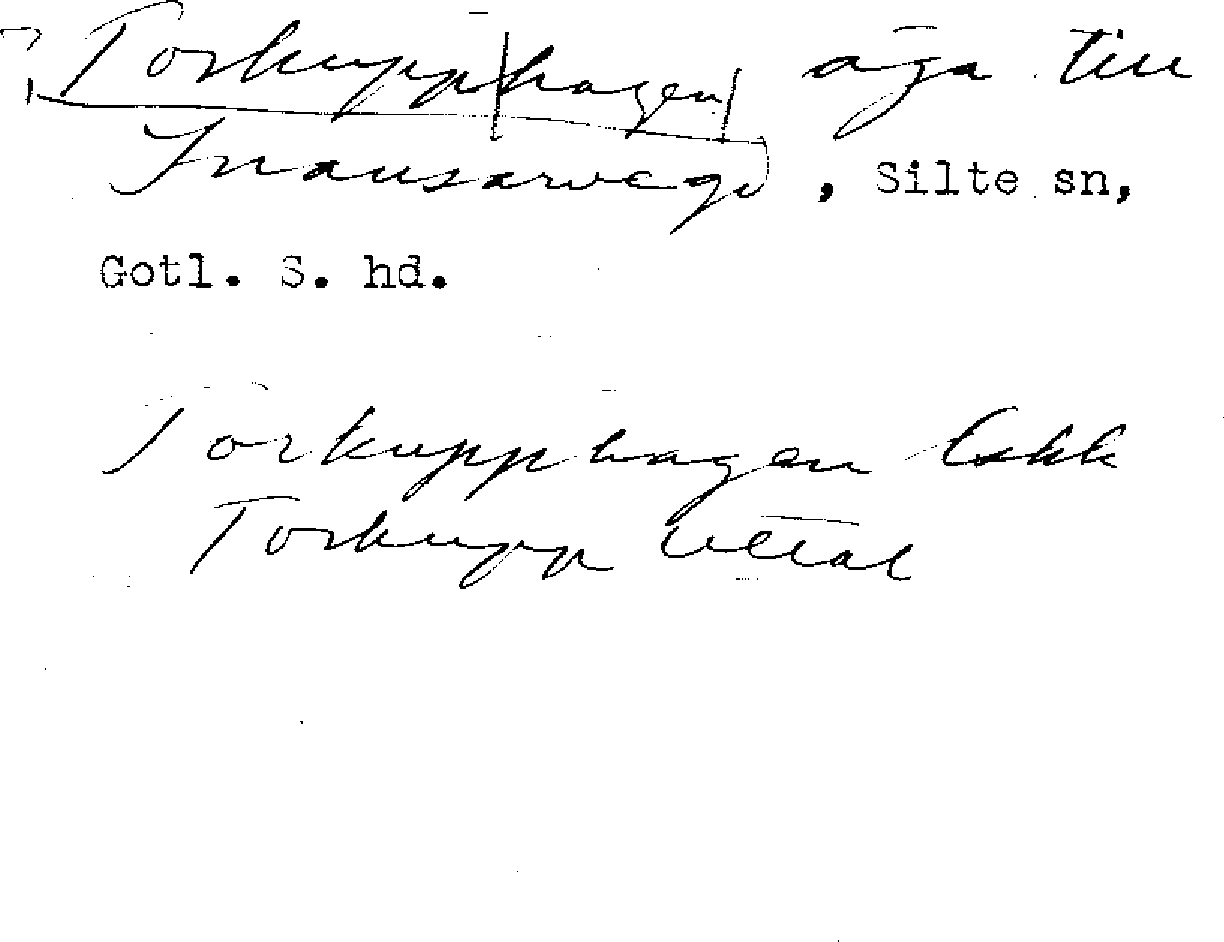 Torkupp|hagen| äga till
Snausarve gd, Silte sn,
Gotl. S. hd.
Torkupphagen Lskk
Torkupp uttal